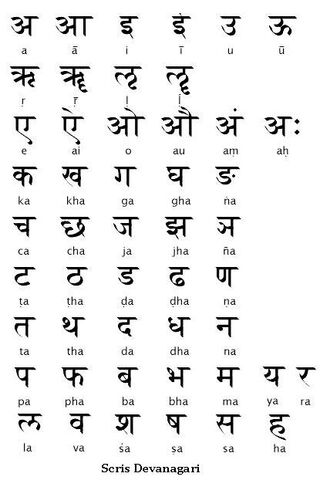 अ आ इ ई उ ऊ
a ā i ī u ū
ऋ ॠ ऌ ॡ
ṛ ṝ ḷ ḹ
ए ऐ ओ औ अं अः
e ai o au aṃ aḥ
क ख ग घ ङ
ka kha ga gha ṅa
च छ ज झ ञ
ca cha ja jha ña
ट ठ ड ढ ण
ṭa ṭha ḍa ḍha ṇa
त थ द ध न
ta tha da dha na
प फ ब भ म य र
pa pha ba bha ma ya ra
ल व श ष स ह
la va śa ṣa sa ha
Scris Devanagari